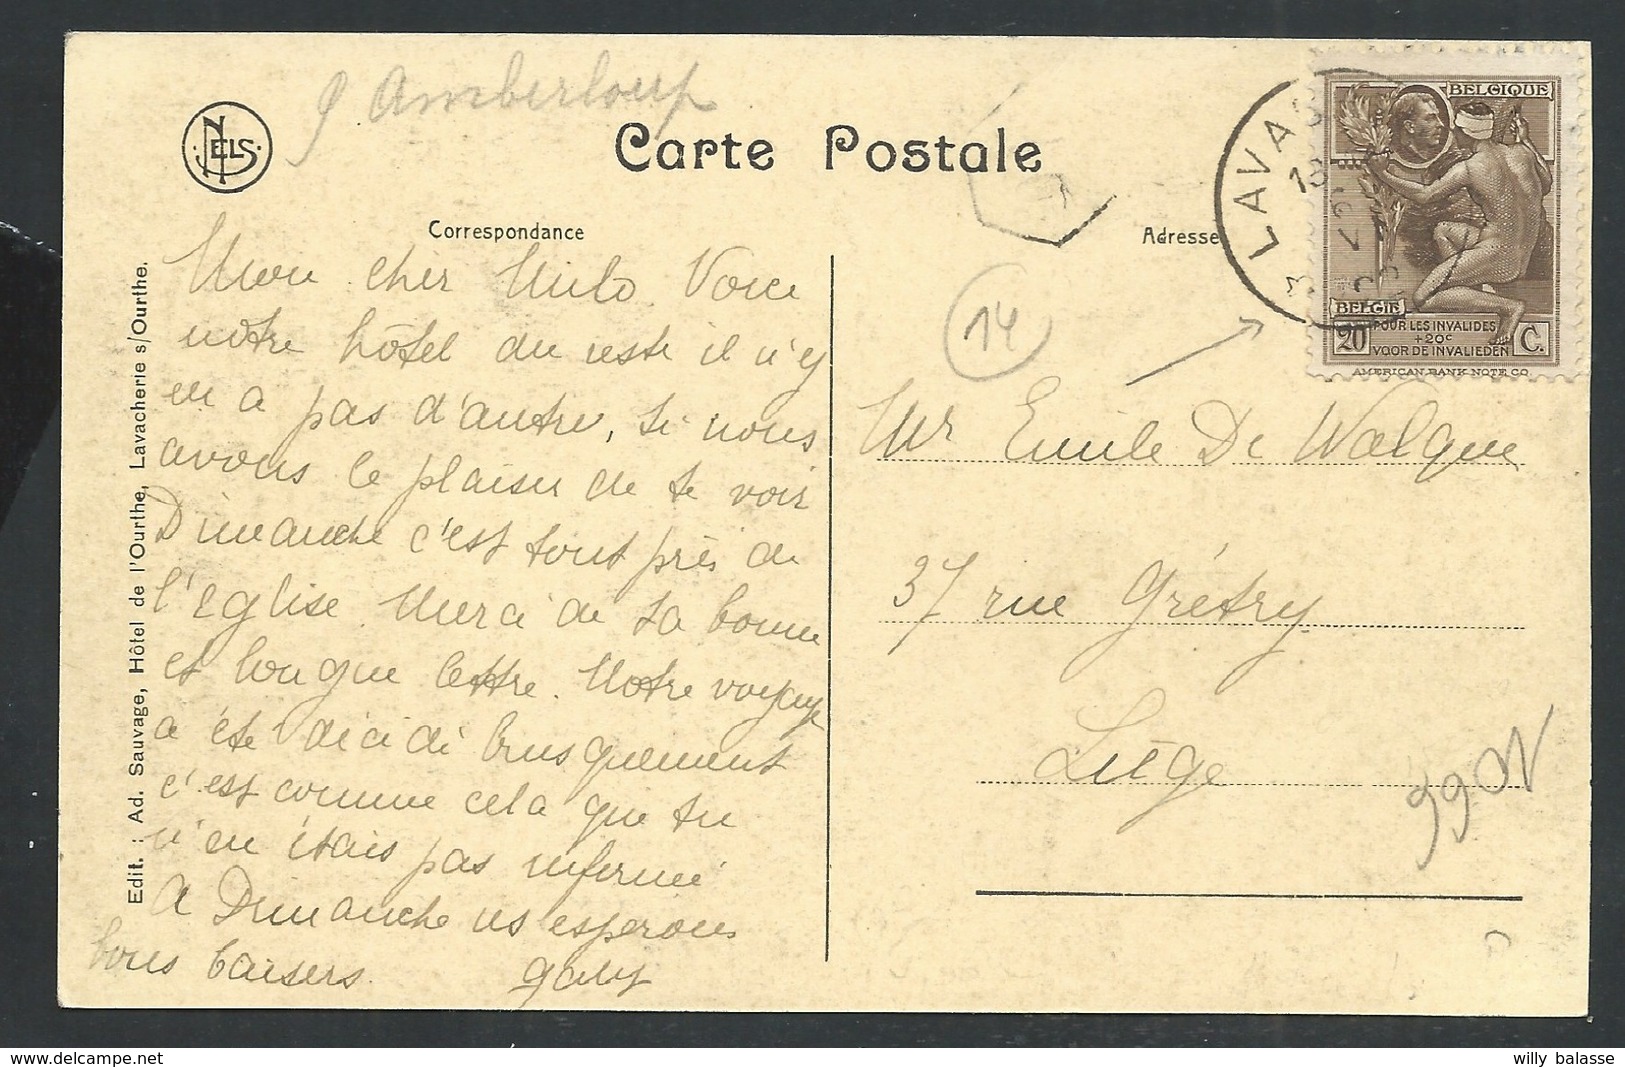 Amberloup
NELS
Carte Postale
Correspondance
Adresse
BELGIQUE
LAVA
BELGIE
20
POUR LES INVALIDES
+20c
VOOR DE INVALIEDEN
C.
AMERICAN BANK NOTE CO.
14
Mon cher Milo. Voici
notre hôtel du reste il n'y
en a pas d'autre, si nous
avons le plaisir de te voir
Dimanche c'est tout près de
l'Eglise. Merci de ta bonne
et longue lettre. Notre voyage
a été décidé brusquement
c'est comme cela que tu
n'en étais pas informé
A Dimanche ns esperons
bons baisers. Gaby
Mr Emile De Walque
37 rue Grétry
Liège
Edit. : Ad. Sauvage, Hôtel de l'Ourthe, Lavacherie s/Ourthe.
willy balasse